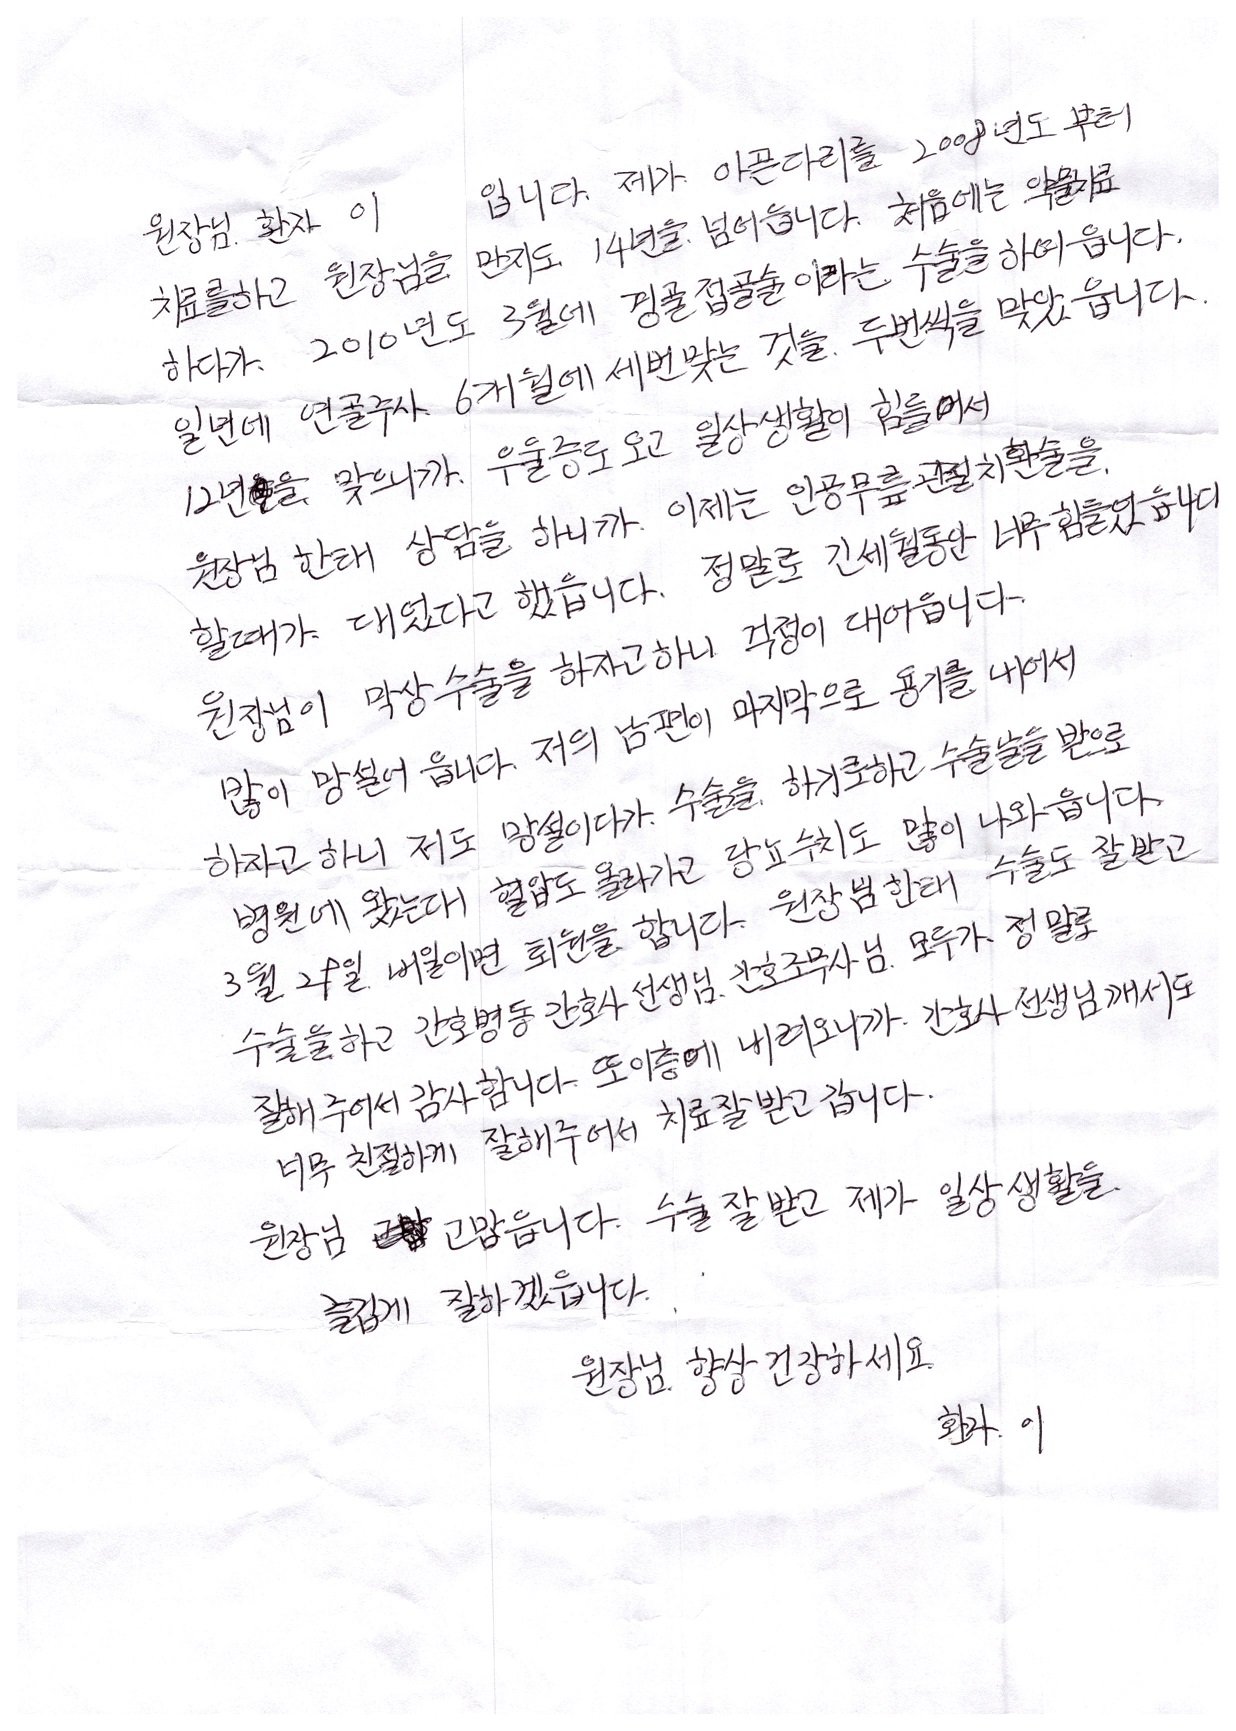 원장님. 환자 이 입니다. 제가 아픈다리를 2008년도 부터
치료를하고 원장님을 만지도 14년을 넘어읍니다. 처음에는 약물치료
하다가. 2010년도 3월에 경골접골술이라는 수술을 하여 읍니다.
일면에 연골주사. 6개월에 세번맞는 것을. 두번씩을 맞았 읍니다.
12년을 맞으니까. 우울증도 오고 일상생활이 힘들어서
원장님 한태 상담을 하니까. 이제는 인공무릎관절치환술을.
할때가. 대었다고 했읍니다. 정말로 긴세월동안 너무힘들었읍니다
원장님이 막상수술을 하자고하니 걱정이 대아읍니다.
많이 망설어 읍니다. 저의 남편이 마지막으로 용기를 내어서
하자고 하니 저도 망설이다가. 수술을. 하기로하고 수술날을 받으로
병원에 왔는대 혈압도 올라가고 당뇨수치도 많이 나와 읍니다.
3월 일. 버월이면 퇴원을 합니다. 원장님한태 수술도 잘받고
수술을하고 간호병동 간호사 선생님. 간호조무사님. 모두가. 정말로
잘해 주어서 감사 함니다. 또이층에 비려오니까. 간호사 선생님깨서도
너무 친절하게 잘해주어서 치료잘받고 갑니다.
원장님 고맙읍니다. 수술 잘받고 제가 일상생활을.
즐겁게 잘하겠읍니다.
원장님. 향상 건강하세요.
환자. 이